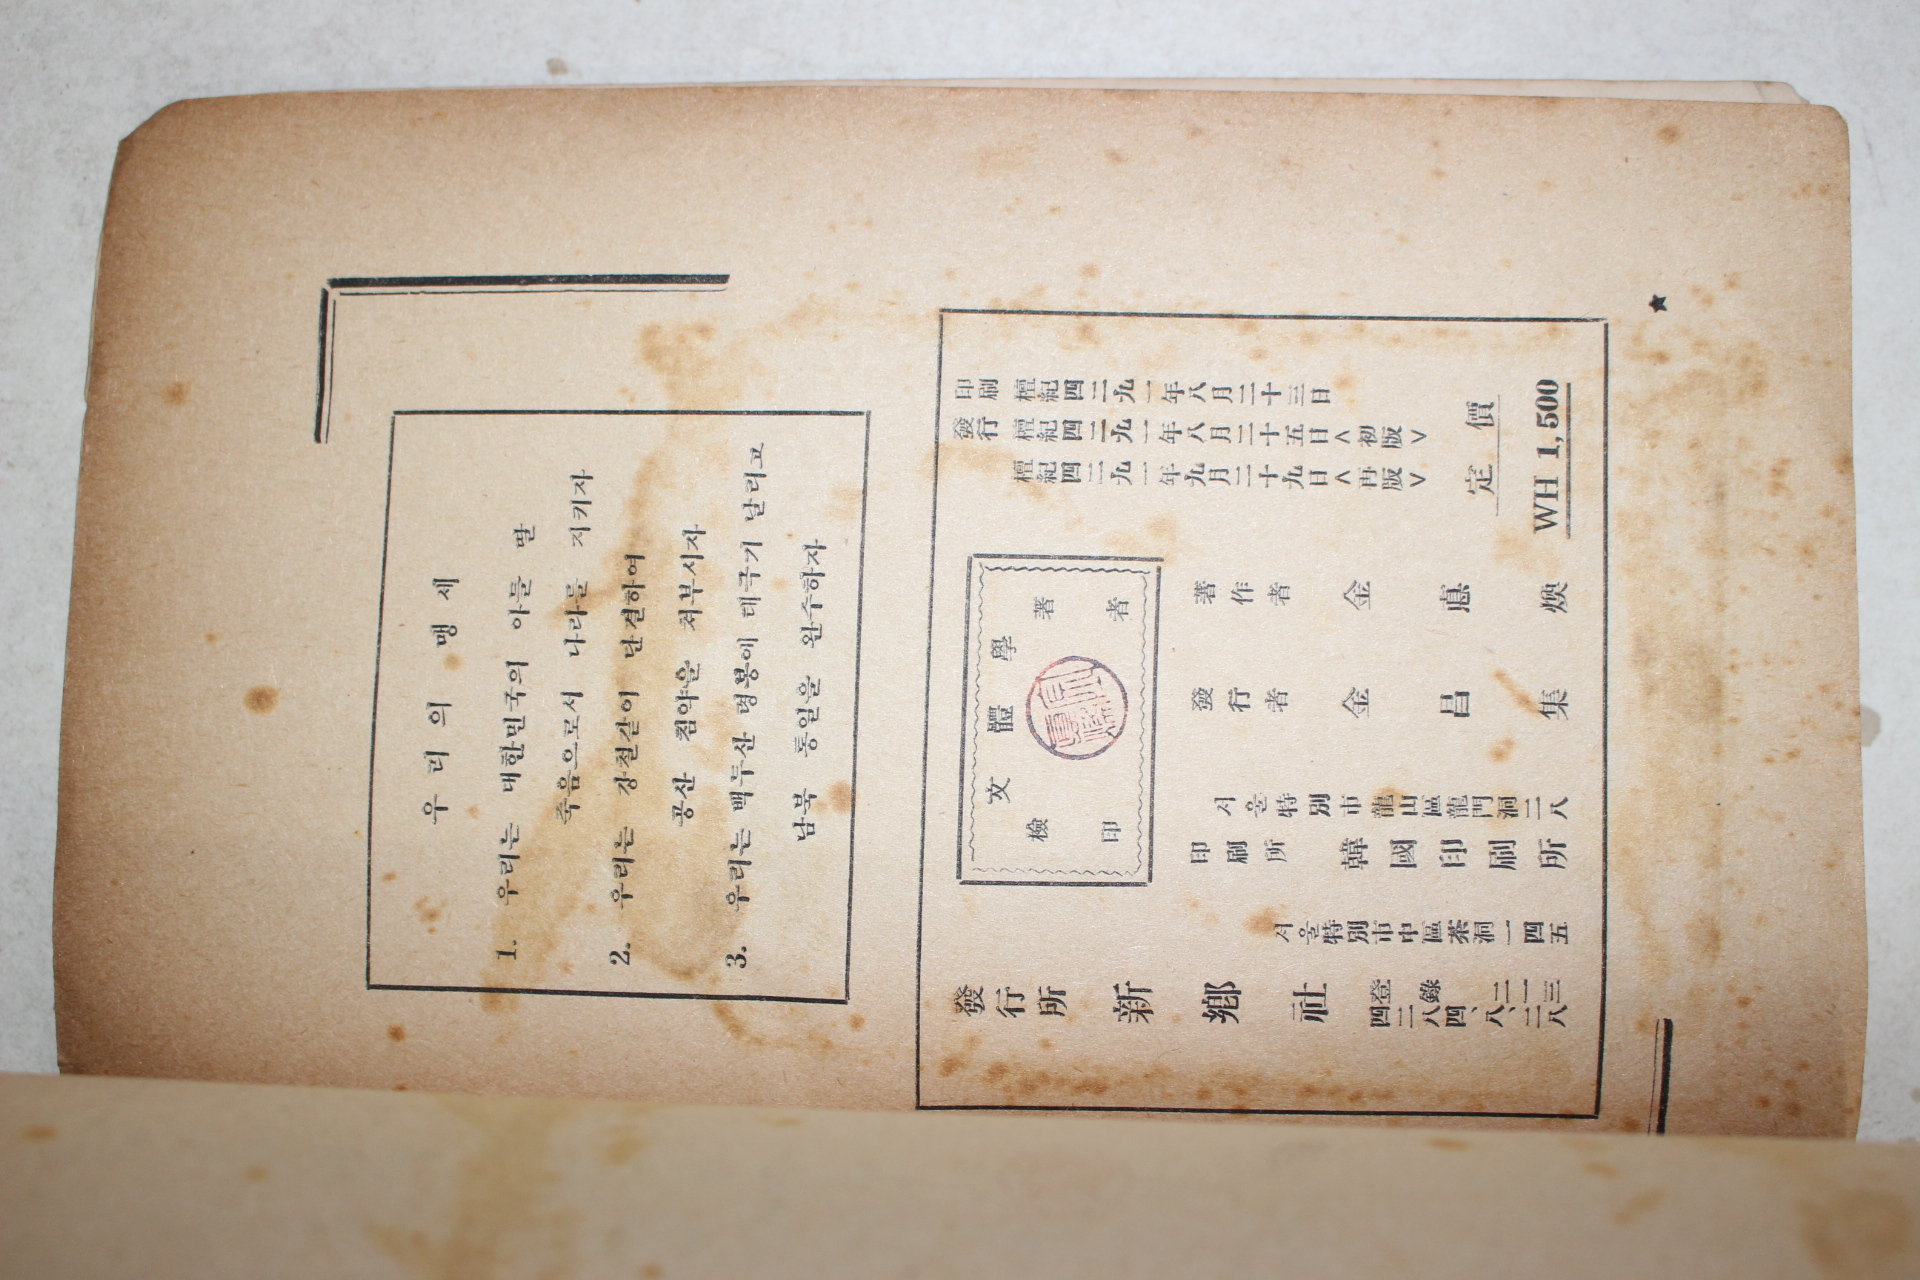 우리의 맹세
1. 우리는 대한민국의 아들 딸
죽음으로서 나라를 지키자
2. 우리는 강철같이 단결하여
공산 침약을 처부시자
3. 우리는 백두산 령봉에 태극기 날리고
남북 통일을 완수하자
印刷 檀紀四二九一年八月二十三日
發行 檀紀四二九一年八月二十五日<初版>
檀紀四二九一年九月二十九日<再版>
定價
WH 1,500
文體學
著者
檢印
著作者 金悳煥
發行者 金昌集
서울特別市龍山區龍門洞二八
印刷所 韓國印刷所
서울特別市中區茶洞一四五
發行所 新鄕社
登錄 二一三
四二八四、八、二八